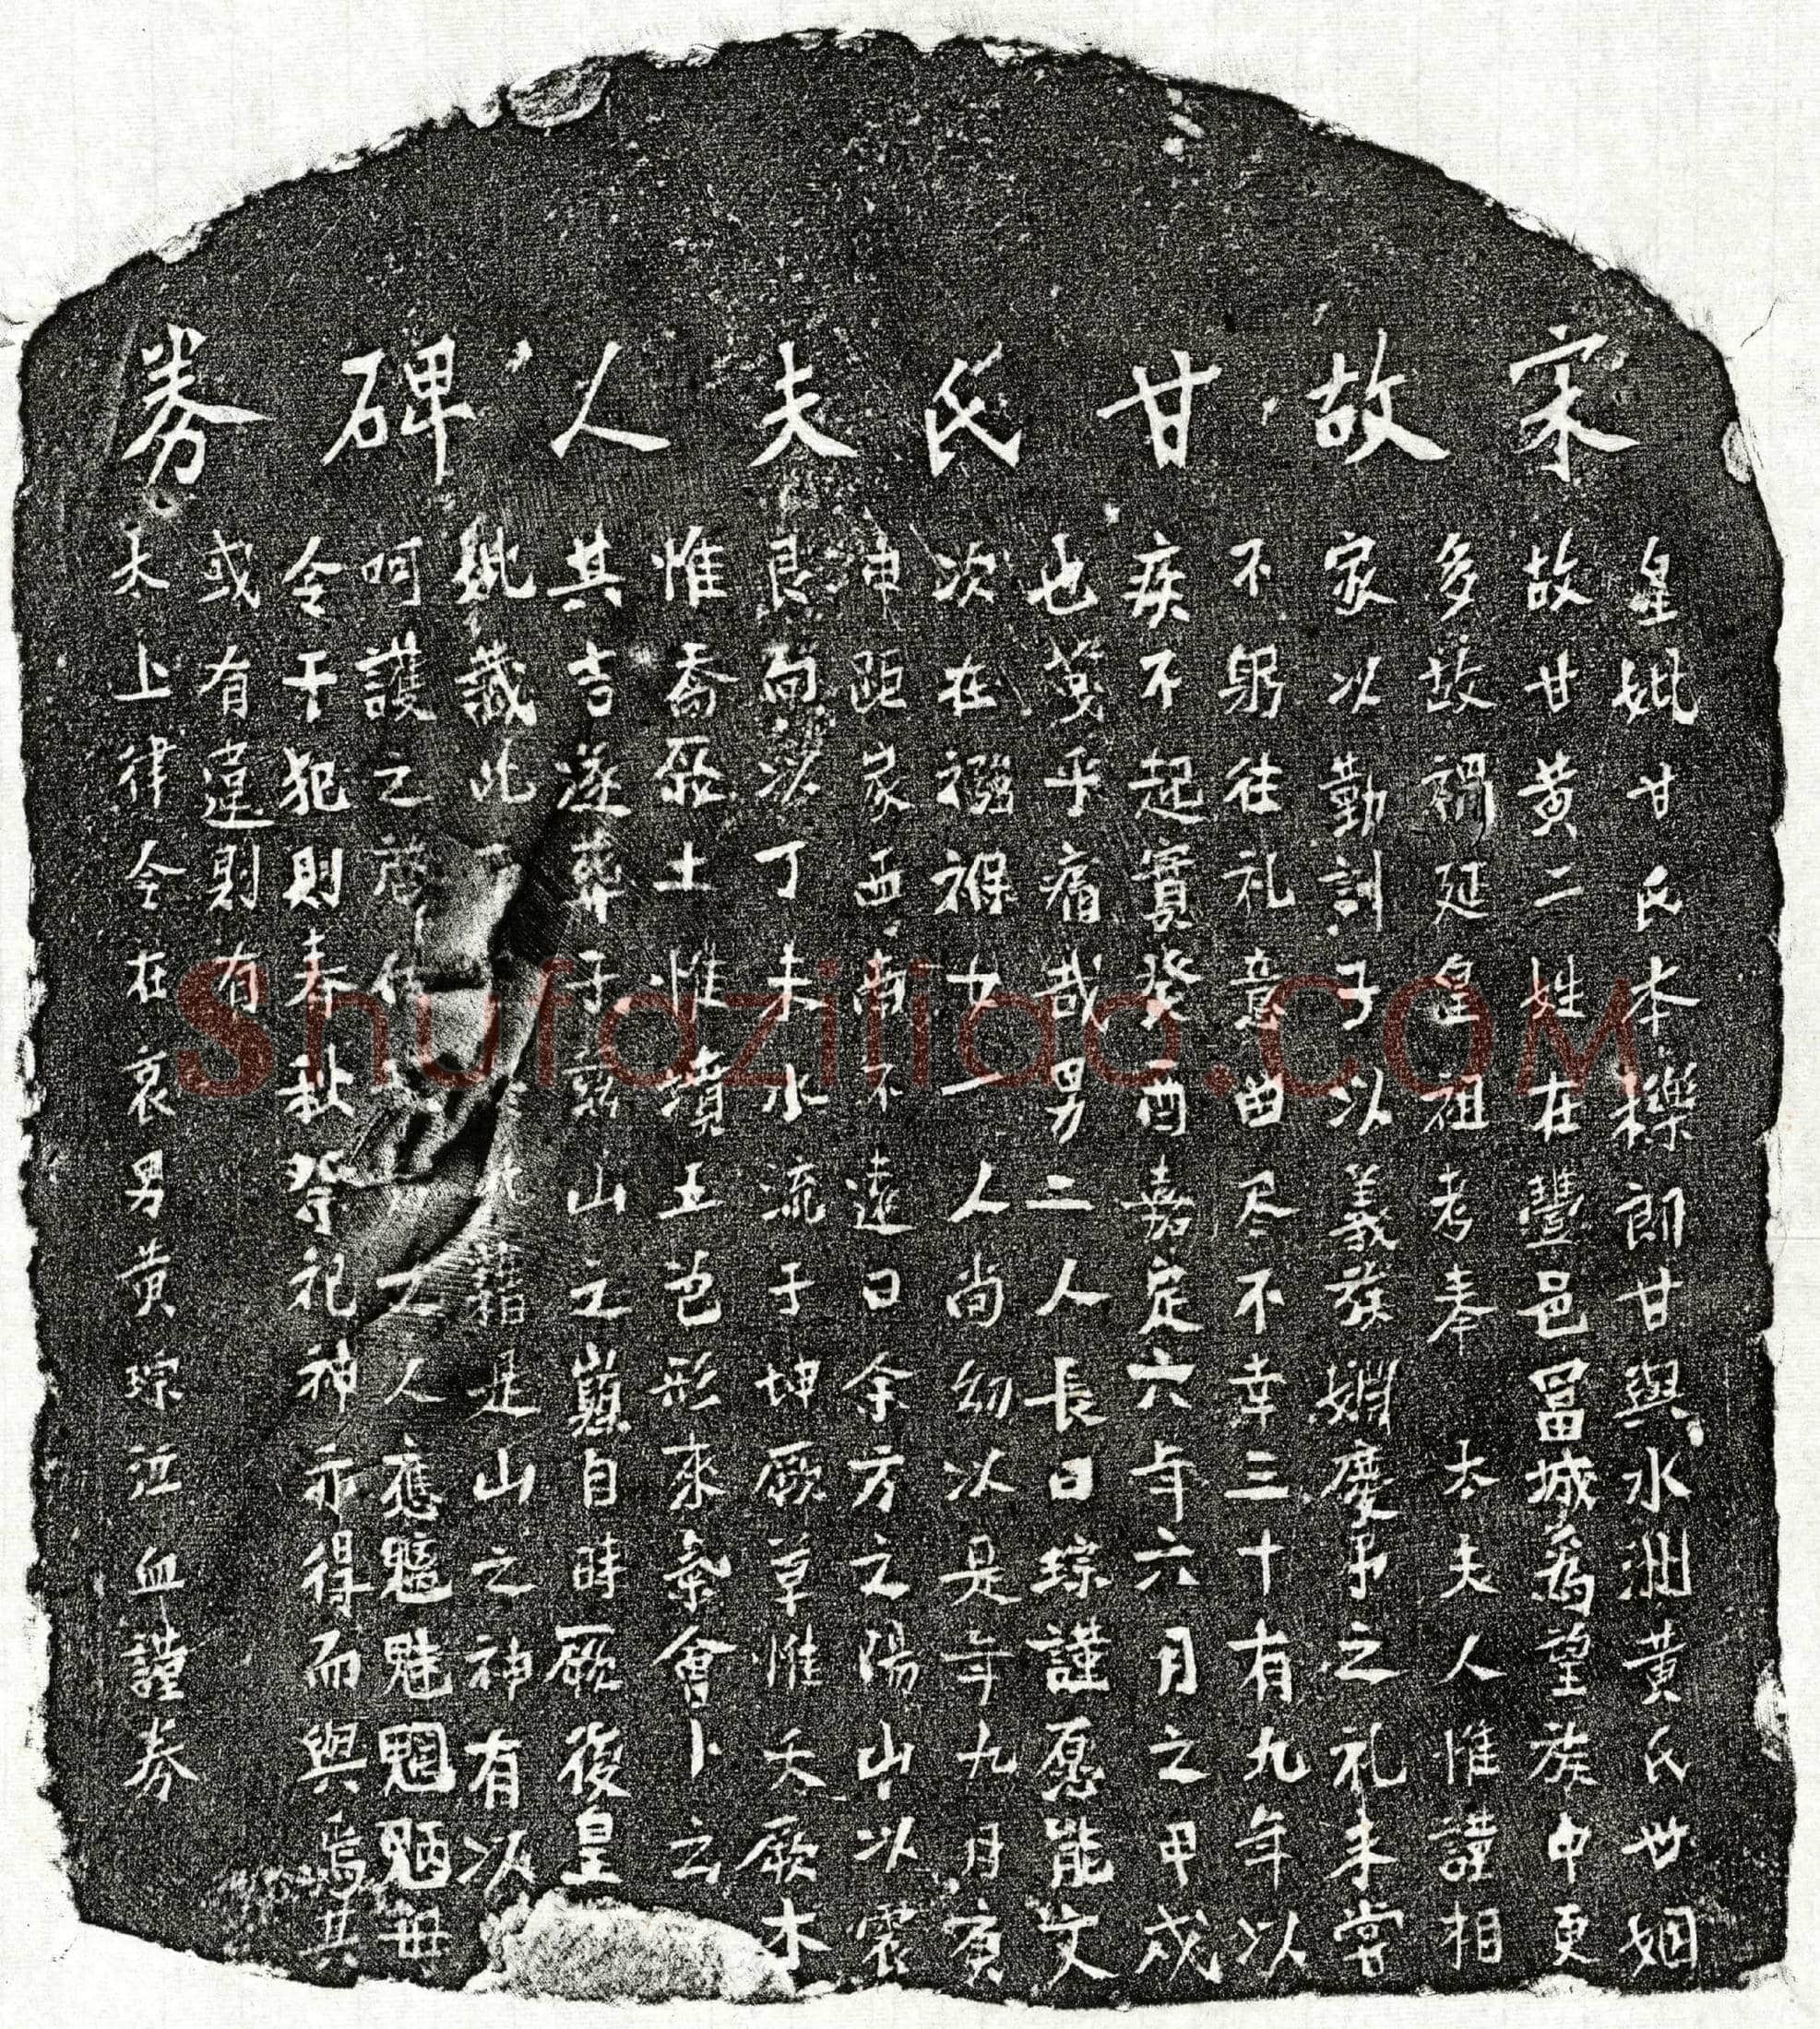 宋故甘氏夫人碑券
皇妣甘氏本櫟郎甘與水洲黃氏世姻
故甘黃二姓在豐邑冨城為望族中更
多故禍延皇祖考奉太夫人惟謹相
家以勤訓子以義族姻慶弔之礼未嘗
不躬往礼意曲尽不幸三十有九年以
疾不起實癸酉嘉定六年六月之甲戌
也莫乎痛哉男二人長曰琮謹愿能文
次在襁褓女一人尚幼以是年九月庚
申距家西南不遠曰余方之陽山以震
艮向以丁未水流于坤厥草惟夭厥木
惟喬厥土惟墳五色形來氣會卜云
其吉遂葬于茲山之巔自時厥後皇
妣藏此是山之神有以
呵護之人應魑魅魍魎毋
令干犯則春秋祭祀神亦得而與焉其
或有違則有
天上律令在哀男黃琮泣血謹券
Shufaziliao.COM